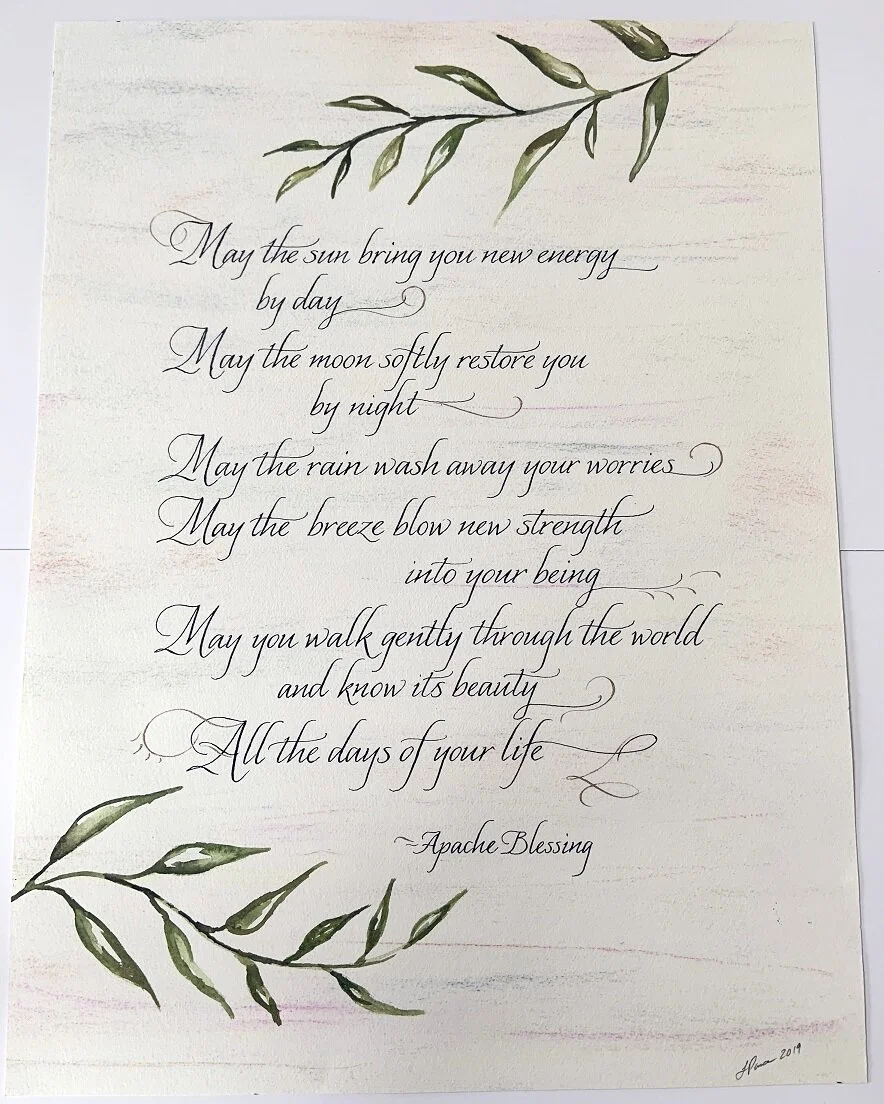 May the sun bring you new energy
by day
May the moon softly restore you
by night
May the rain wash away your worries
May the breeze blow new strength
into your being
May you walk gently through the world
and know its beauty
All the days of your life
~Apache Blessing
2019